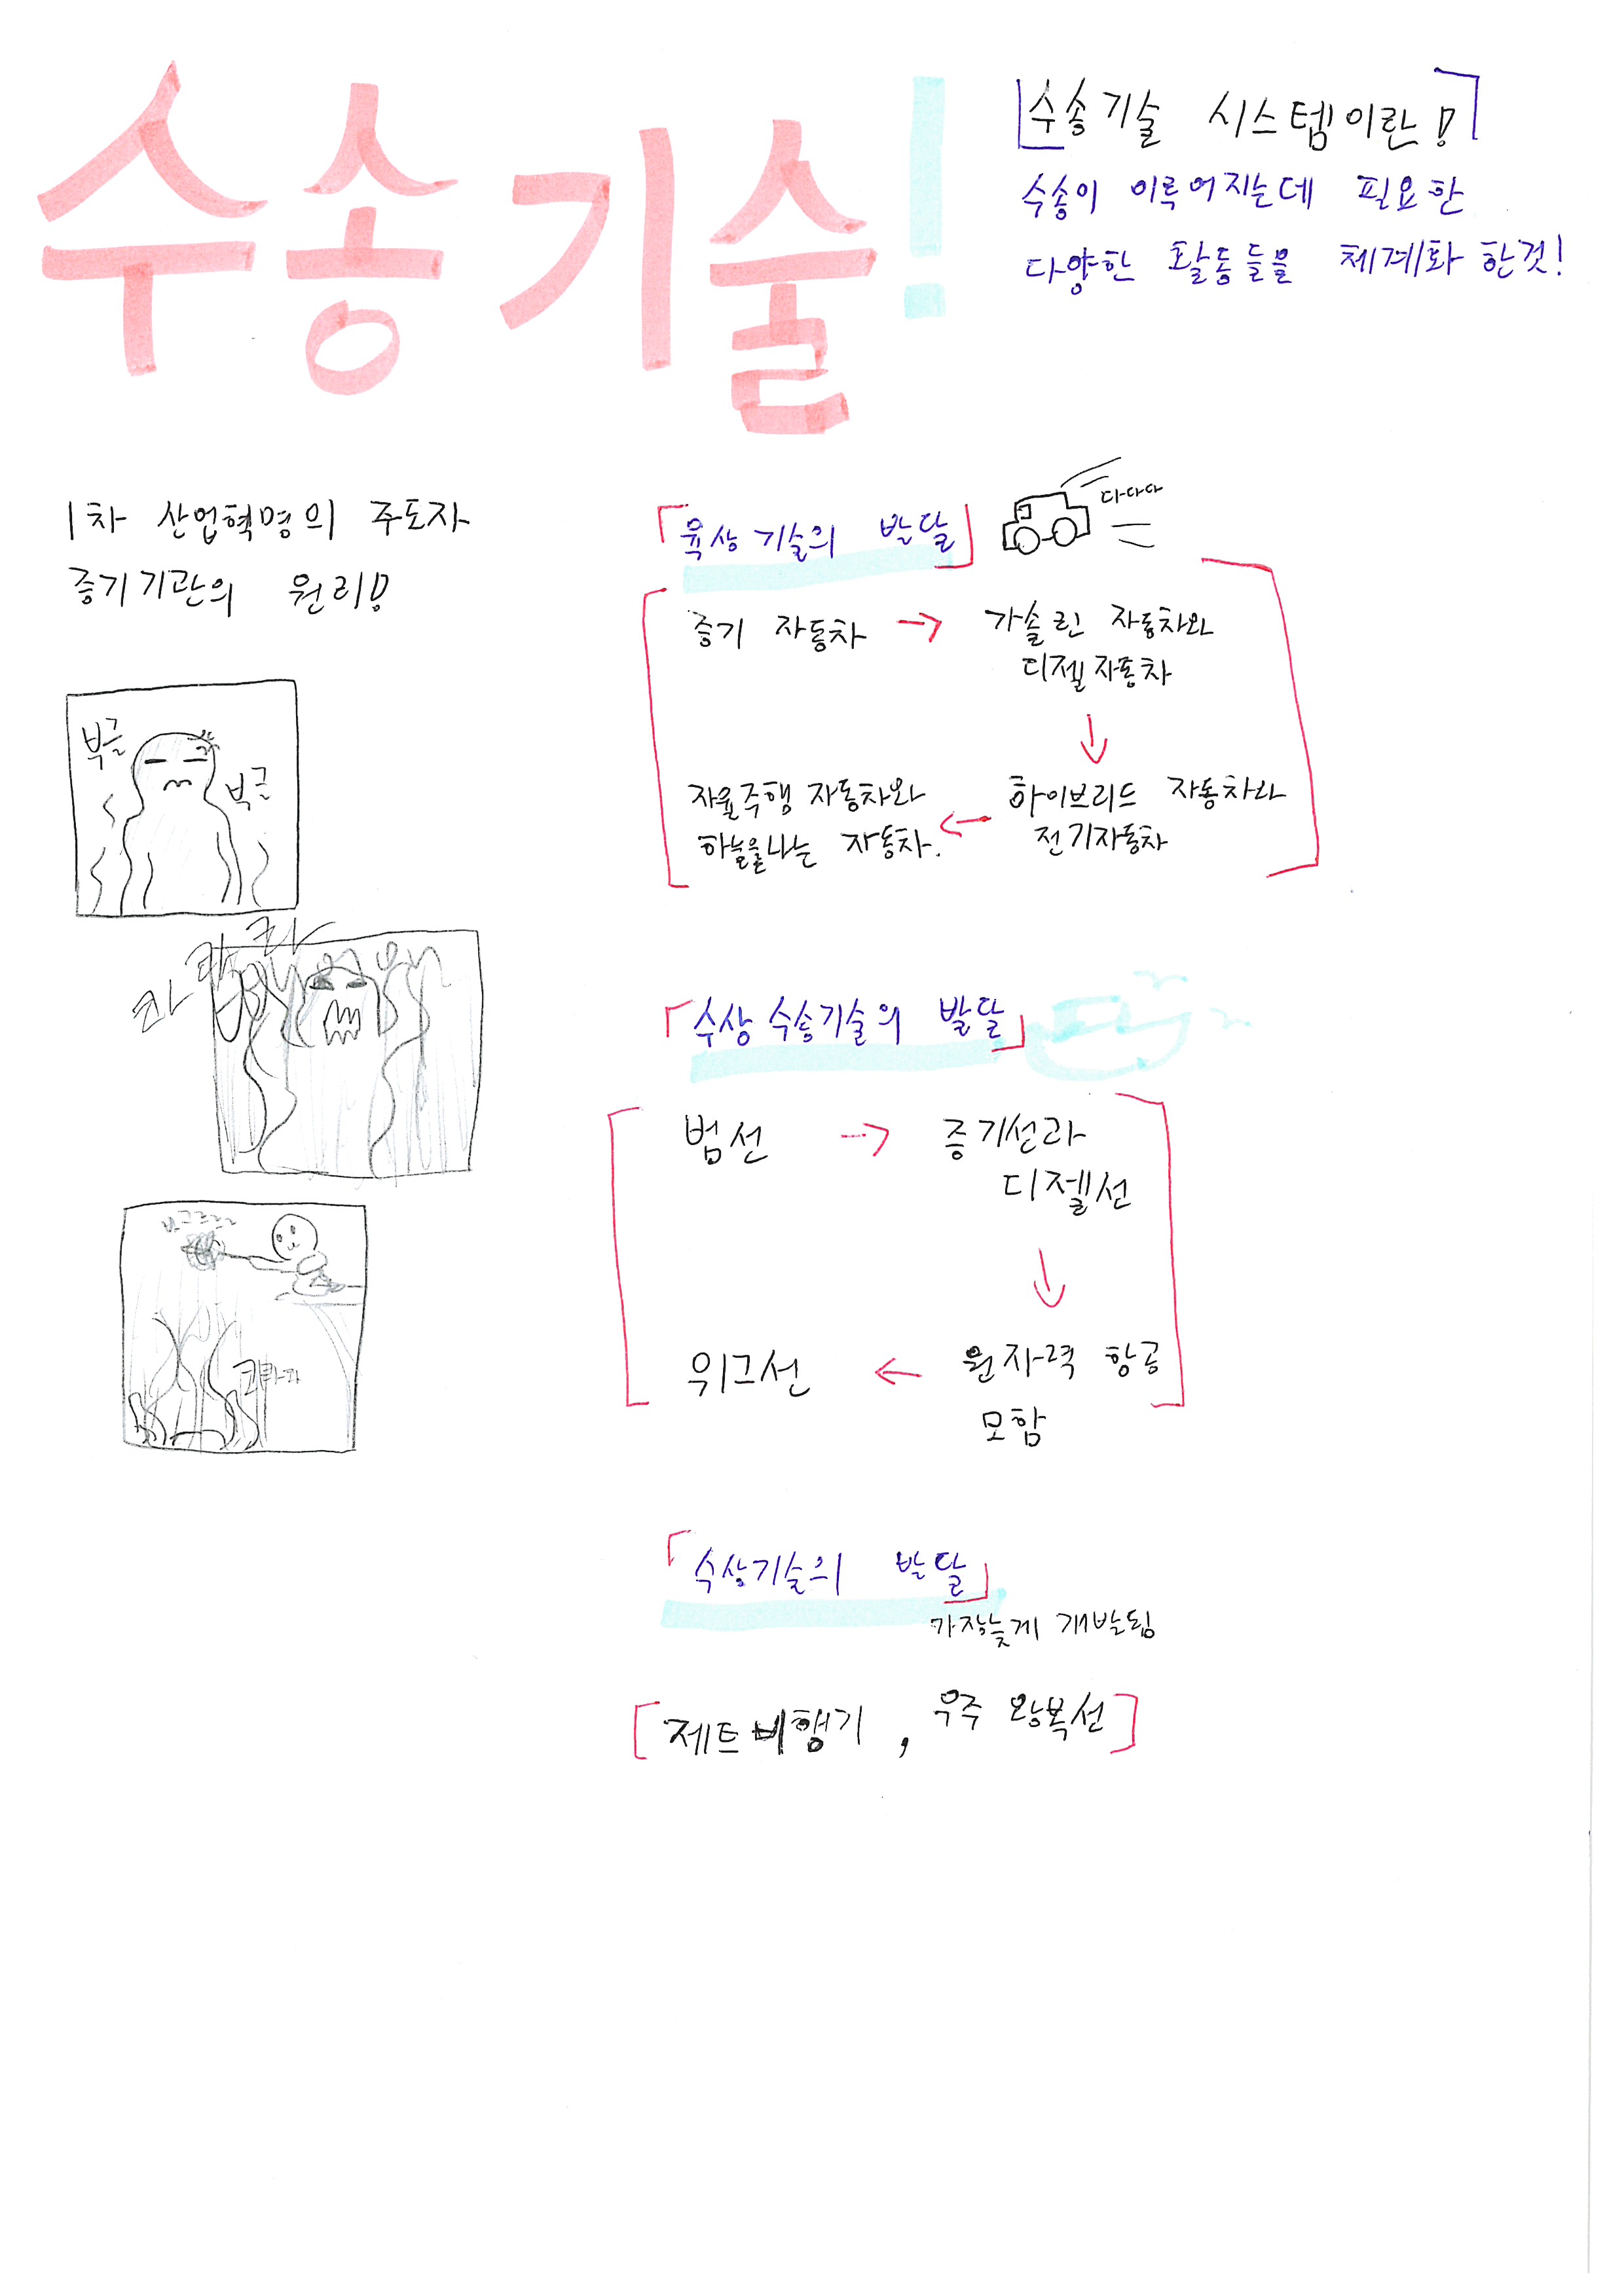 수송기술!
[수송기술 시스템이란!]
수송이 이루어지는데 필요한
다양한 활동들을 체계화 한것!
1차 산업혁명의 주도자
증기기관의 원리!
부글
부글
콰콰콰
「육상 기술의 발달」
다다다
증기 자동차 → 가솔린 자동차와
디젤자동차
↓
자율주행 자동차와 ← 하이브리드 자동차와
하늘을나는 자동차. 전기자동차
「수상 수송기술의 발달」
범선 → 증기선과
디젤선
↓
위그선 ← 원자력 항공
모함
「수상기술의 발달」
가장늦게 개발됨
[제트비행기, 우주 왕복선]